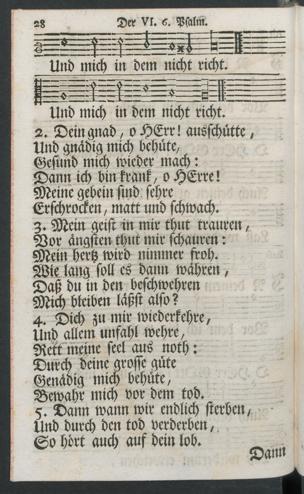 28 Der VI. 6. Psalm.
Und mich in dem nicht richt.
Und mich in dem nicht richt.
2. Dein gnad, o HErr! ausschütte,
Und gnädig mich behüte,
Gesund mich wieder mach:
Dann ich bin krank, o HErre!
Meine gebein sind sehre
Erschrocken, matt und schwach.
3. Mein geist in mir thut trauren,
Vor ängsten thut mir schauren:
Mein hertz wird nimmer froh.
Wie lang soll es dann währen,
Daß du in den beschwehren
Mich bleiben läßst also?
4. Dich zu mir wiederkehre,
Und allem unfahl wehre,
Rett meine seel aus noth:
Durch deine grosse güte
Genädig mich behüte,
Bewahr mich vor dem tod.
5. Dann wann wir endlich sterben,
Und durch den tod verderben,
So hört auch auf dein lob.
Dann